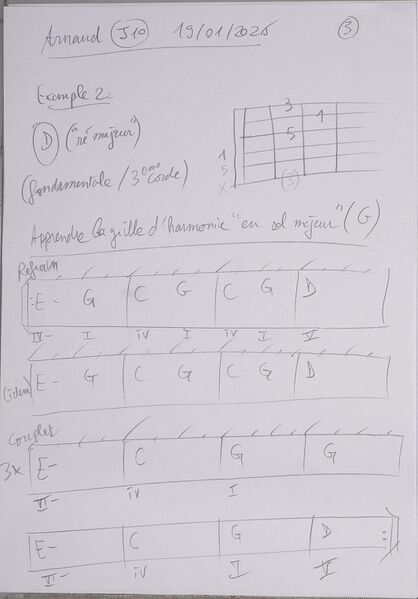 Arnaud J10 19/01/2025 3
Example 2:
D ("ré majeur")
(fondamentale / 3eme corde)
3
1
5
1
5
x
(3)
Apprendre la grille d'harmonie "en sol majeur" (G)
Refrain
E- G C G C G D
VI- I IV I IV I V
(idem) E- G C G C G D
Couplet
3x E- C G G
VI- IV I
E- C G D :
VI- IV I V